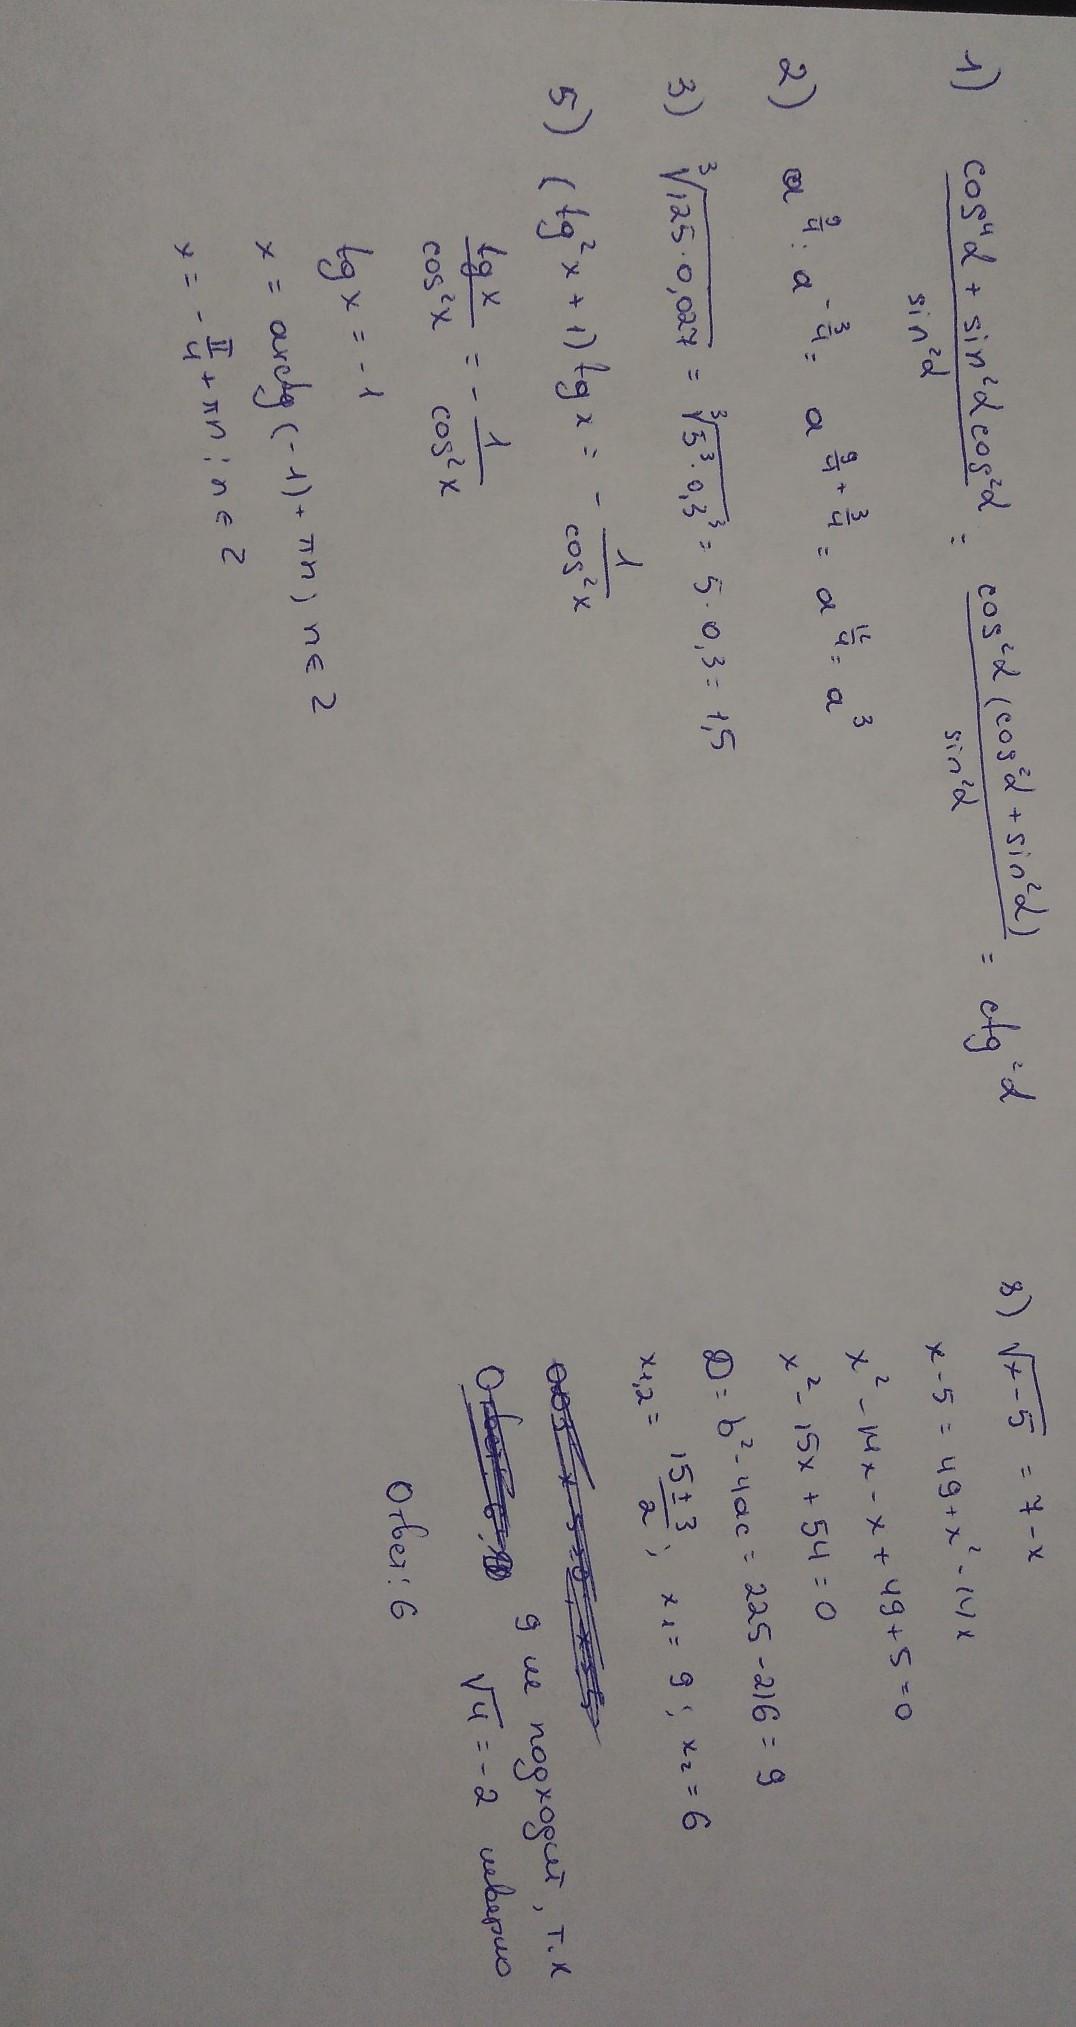 1) (cos⁴α + sin²α cos²α)/sin²α = (cos²α (cos²α + sin²α))/sin²α = ctg²α
2) a^(9/4) : a^(-3/4) = a^(9/4 + 3/4) = a^(12/4) = a³
3) ∛(125·0,027) = ∛(5³·0,3³) = 5·0,3 = 1,5
5) (tg²x + 1) tg x = - 1/cos²x
tg x/cos²x = - 1/cos²x
tg x = -1
x = arctg(-1) + πn, n ∈ Z
x = - π/4 + πn; n ∈ Z
8) √(x-5) = 7-x
x-5 = 49 + x² - 14x
x² - 14x - x + 49 + 5 = 0
x² - 15x + 54 = 0
D = b² - 4ac = 225 - 216 = 9
x₁,₂ = (15 ± 3)/2; x₁ = 9; x₂ = 6
9 не подходит, т.к
√4 = -2 неверно
Ответ: 6